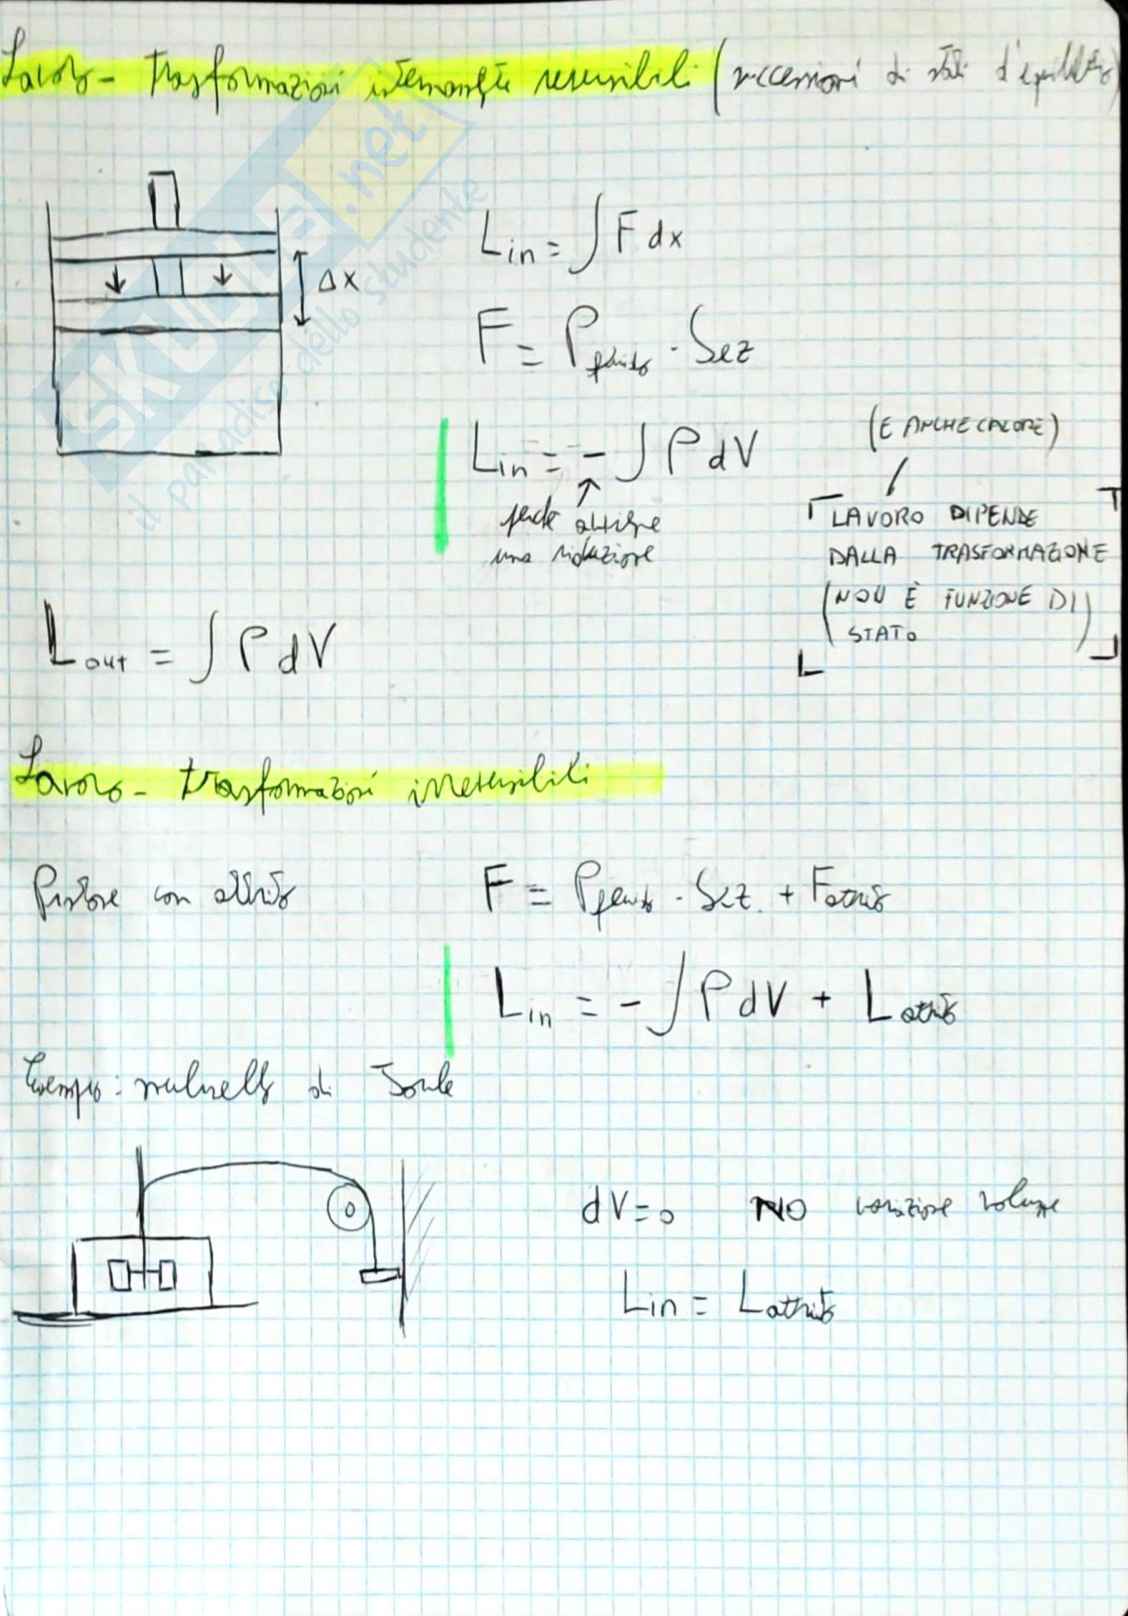 Lavoro - trasformazioni internamente reversibili (successioni di stati d'equilibrio)
SKUOLA.net
il paradiso dello studente
Δx
Lin = ∫ F dx
F = Pfluido · Sez
Lin = - ∫ P dV
perché avviene
una riduzione
(E ANCHE CALORE)
LAVORO DIPENDE
DALLA TRASFORMAZIONE
(NON È FUNZIONE DI
STATO)
Lout = ∫ P dV
Lavoro - trasformazioni irreversibili
Pistone con attrito
F = Pfluido · Sez. + Fattrito
Lin = - ∫ P dV + Lattrito
Esempio: mulinello di Joule
dV = 0 NO variazione volume
Lin = Lattrito